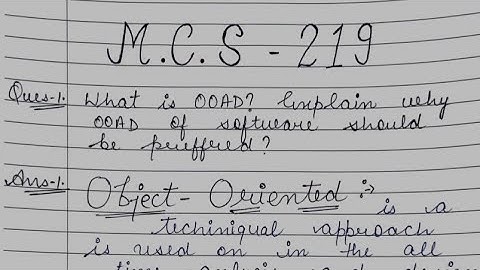 M.C.S - 219
Ques-1. What is OOAD? Explain why
OOAD of software should
be preffered?
Ans-1. Object-Oriented :- is a
techiniqual approach
is used on in the all
time analysis and design